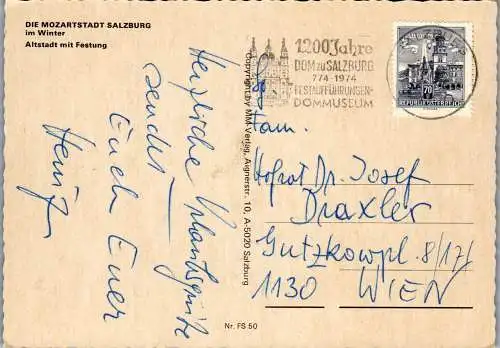 DIE MOZARTSTADT SALZBURG
im Winter
Altstadt mit Festung
1200 Jahre
DOM ZU SALZBURG
774-1974
FESTAUFFÜHRUNGEN-
DOMMUSEUM
70
REPUBLIK ÖSTERREICH
Copyright by MM-Verlag, Aignerstr. 10, A-5020 Salzburg
Herzliche Urlaubsgrüße
sendet
Euch Euer
Fam.
Hofrat Dr. Josef
Draxler
Gutzkowpl. 8/17/
1130 WIEN
Nr. FS 50